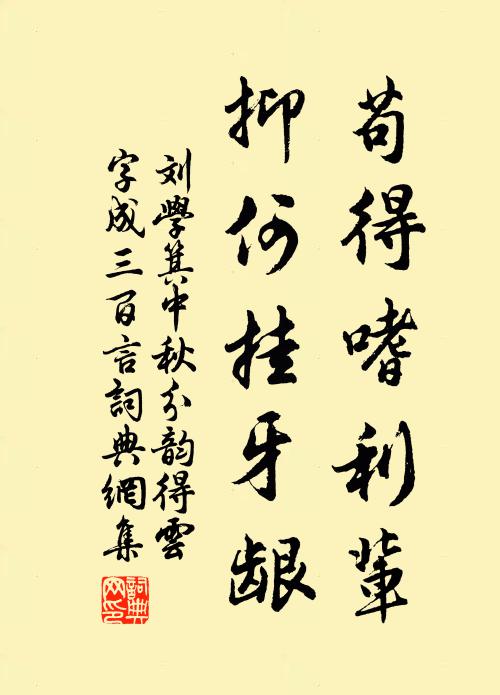 苟得嗜利輩
抑何挂牙龈
刘學箕中秋分韵得雲
字成三百言詞典網集